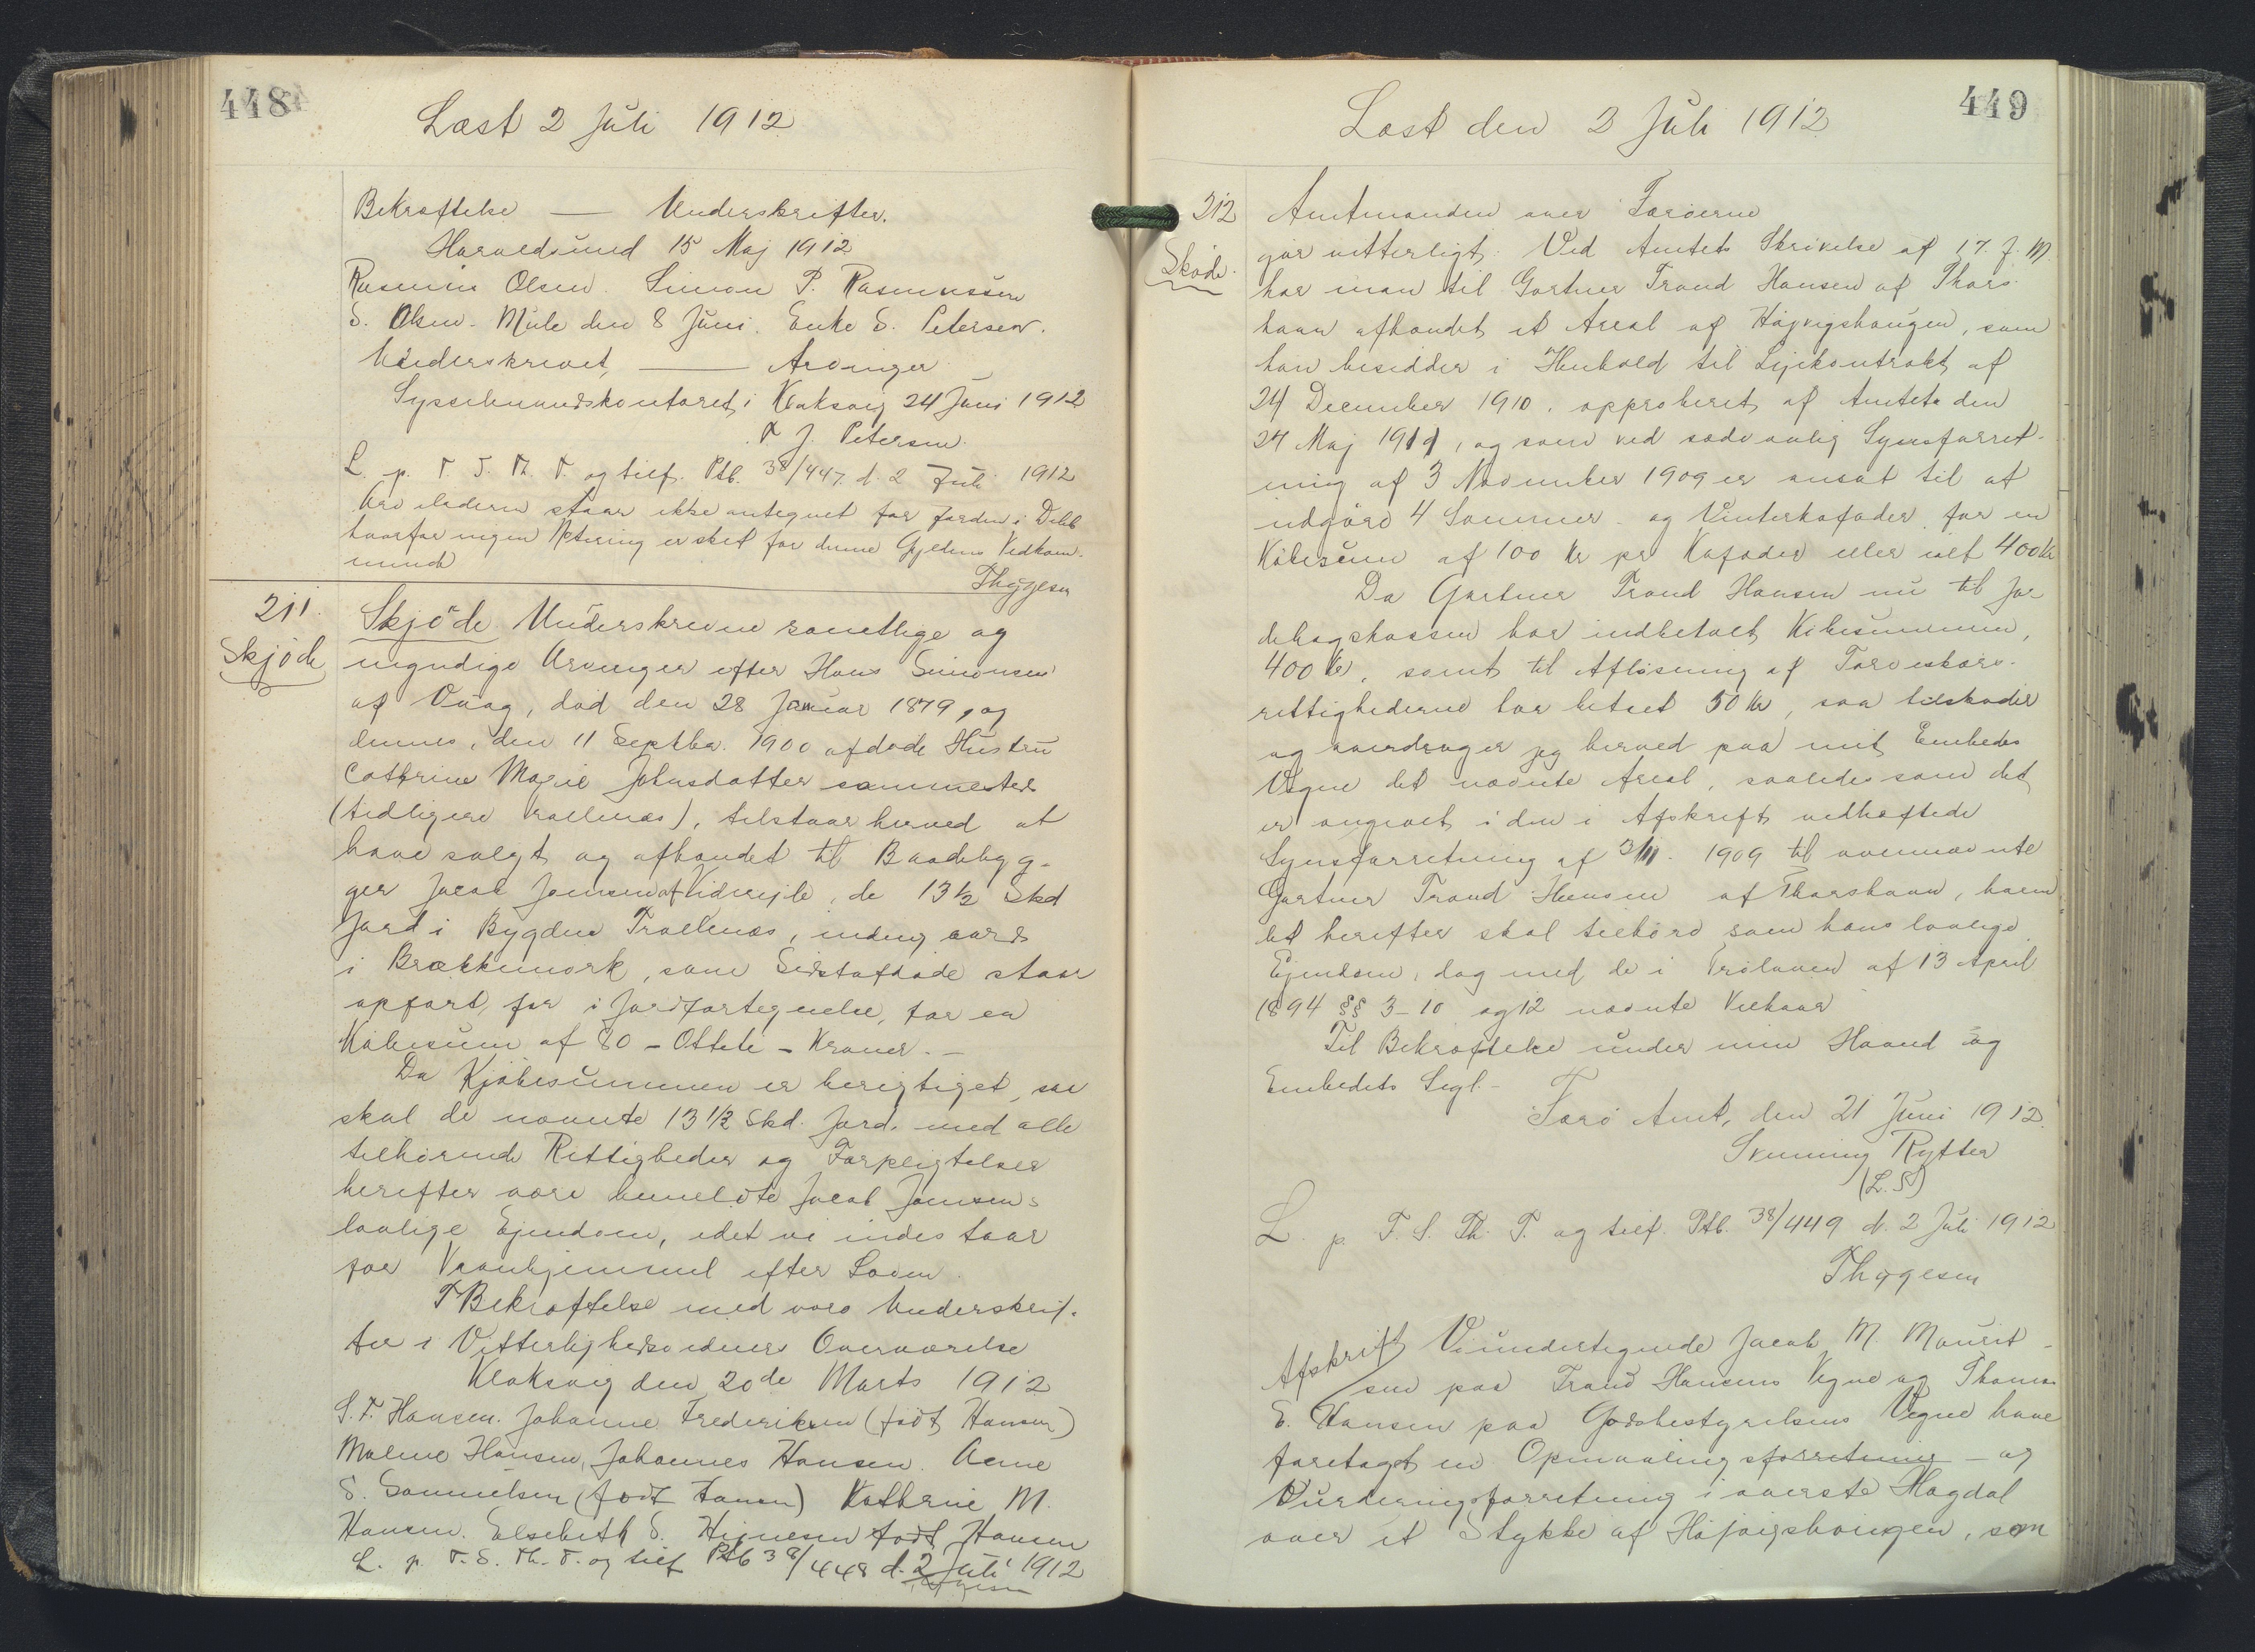 448
Læst 2 Juli 1912
Bekræftelse — Underskrifter.
Haraldsund 15 Maj 1912
Rasmus Olsen. Simon P. Rasmussen
S. Olsen. Mule den 8 Juni. Enke S. Petersen.
Underskrevet, — Arvinger
Sysselmandskontoret i Klaksvig 24 Juni 1912
J. Petersen.
L. p. F. S. Th. T. og tilf. Ptb. 38/447 d. 2 Juli 1912
staar ikke antegnet for Jorden i
hvorfor ingen Notering er sket for denne Gjældens Vedkom-
mende
Thygesen
211.
Skjøde
Skjøde Underskrevne samtlige og
myndige Arvinger efter Hans Simonsen
af Quag, død den 28 Januar 1879, og
dennes, den 11 Septbr. 1900 afdøde Hustru
Cathrine Marie Johnsdatter sammesteds
(tidligere Trøllenæs), tilstaar herved at
have solgt og afhændet til Baadebyg-
ger Jacob Joensen af Viderejde, de 13 1/2 Skd
Jord i Bygden Trøllenæs, indmarks
i Brækkumørk, som Sidstafdøde staar
opført for i Jordfortegnelse, for en
Købesum af 80 - Otteti - Kroner. -
Da Kjøbesummen er berigtiget, saa
skal de nævnte 13 1/2 Skd. Jord. med alle
tilhørende Rettigheder og Forpligtelser
herefter være bemeldte Jacob Joensens
lovlige Ejendom, idet vi indestaar
for Vanhjemmel efter Loven.
T Bekræftelse med vore Underskrif-
ter i Vitterlighedsvidners Overværelse
Klaksvig den 20de Marts 1912
S. F. Hansen. Johanne Frederiksen (født Hansen)
Malene Hansen, Johannes Hansen. Anne
S. Samuelsen (født Hansen) Kathrine M.
Hansen. Elsebeth S. født Hansen
L. p. F. S. Th. T. og tilf Ptb 38/448 d. 2 Juli 1912
Thygesen
449
Læst den 2 Juli 1912
212
Skøde.
Amtmanden over Færøerne
gør vitterligt: Ved Amtets Skrivelse af 17. f. M.
har man til Gartner Trond Hansen af Thors-
havn afhændet et Areal af Højvigshaugen, som
han besidder i Henhold til Lejekontrakt af
24 December 1910, approberet af Amtet den
24 Maj 1911, og som ved sædvanlig Synsforret-
ning af 3 November 1909 er ansat til at
udgøre 4 Sommer- og Vinterkofoder for en
Købesum af 100 Kr pr Kofoder eller ialt 400 Kr
Da Gartner Trond Hansen nu til Jor-
debogskassen har indbetalt Købesummen,
400 Kr, samt til Afløsning af Tørveskærs-
rettighederne har betalt 50 Kr, saa tilskøder
og overdrager jeg herved paa mit Embeds
Vegne det nævnte Areal, saaledes som det
er angivet i den i Afskrift vedhæftede
Synsforretning af 3/11. 1909 til ovennævnte
Gartner Trond Hansen af Thorshavn, hvem
det herefter skal tilhøre som hans lovlige
Ejendom, dog med de i Prøloven af 13 April
1894 §§ 3-10 og 12 nævnte Vilkaar
Til Bekræftelse under min Haand og
Embedets Segl. -
Færø Amt, den 21 Juni 1912.
Svenning Rytter
(L. S)
L. p. F. S. Th. T. og tilf. Ptb. 38/449 d. 2 Juli 1912
Thygesen
Afskrift Vi undertegnede Jacob M. Mourit-
sen paa Trond Hansens Vegne og Thomas
E. Hansen paa Godsbestyrelsens Vegne have
foretaget en Opmaalingsforretning - og
Vurderingsforretning i øverste Hagdal
over et Stykke af Højvigshaugen, som